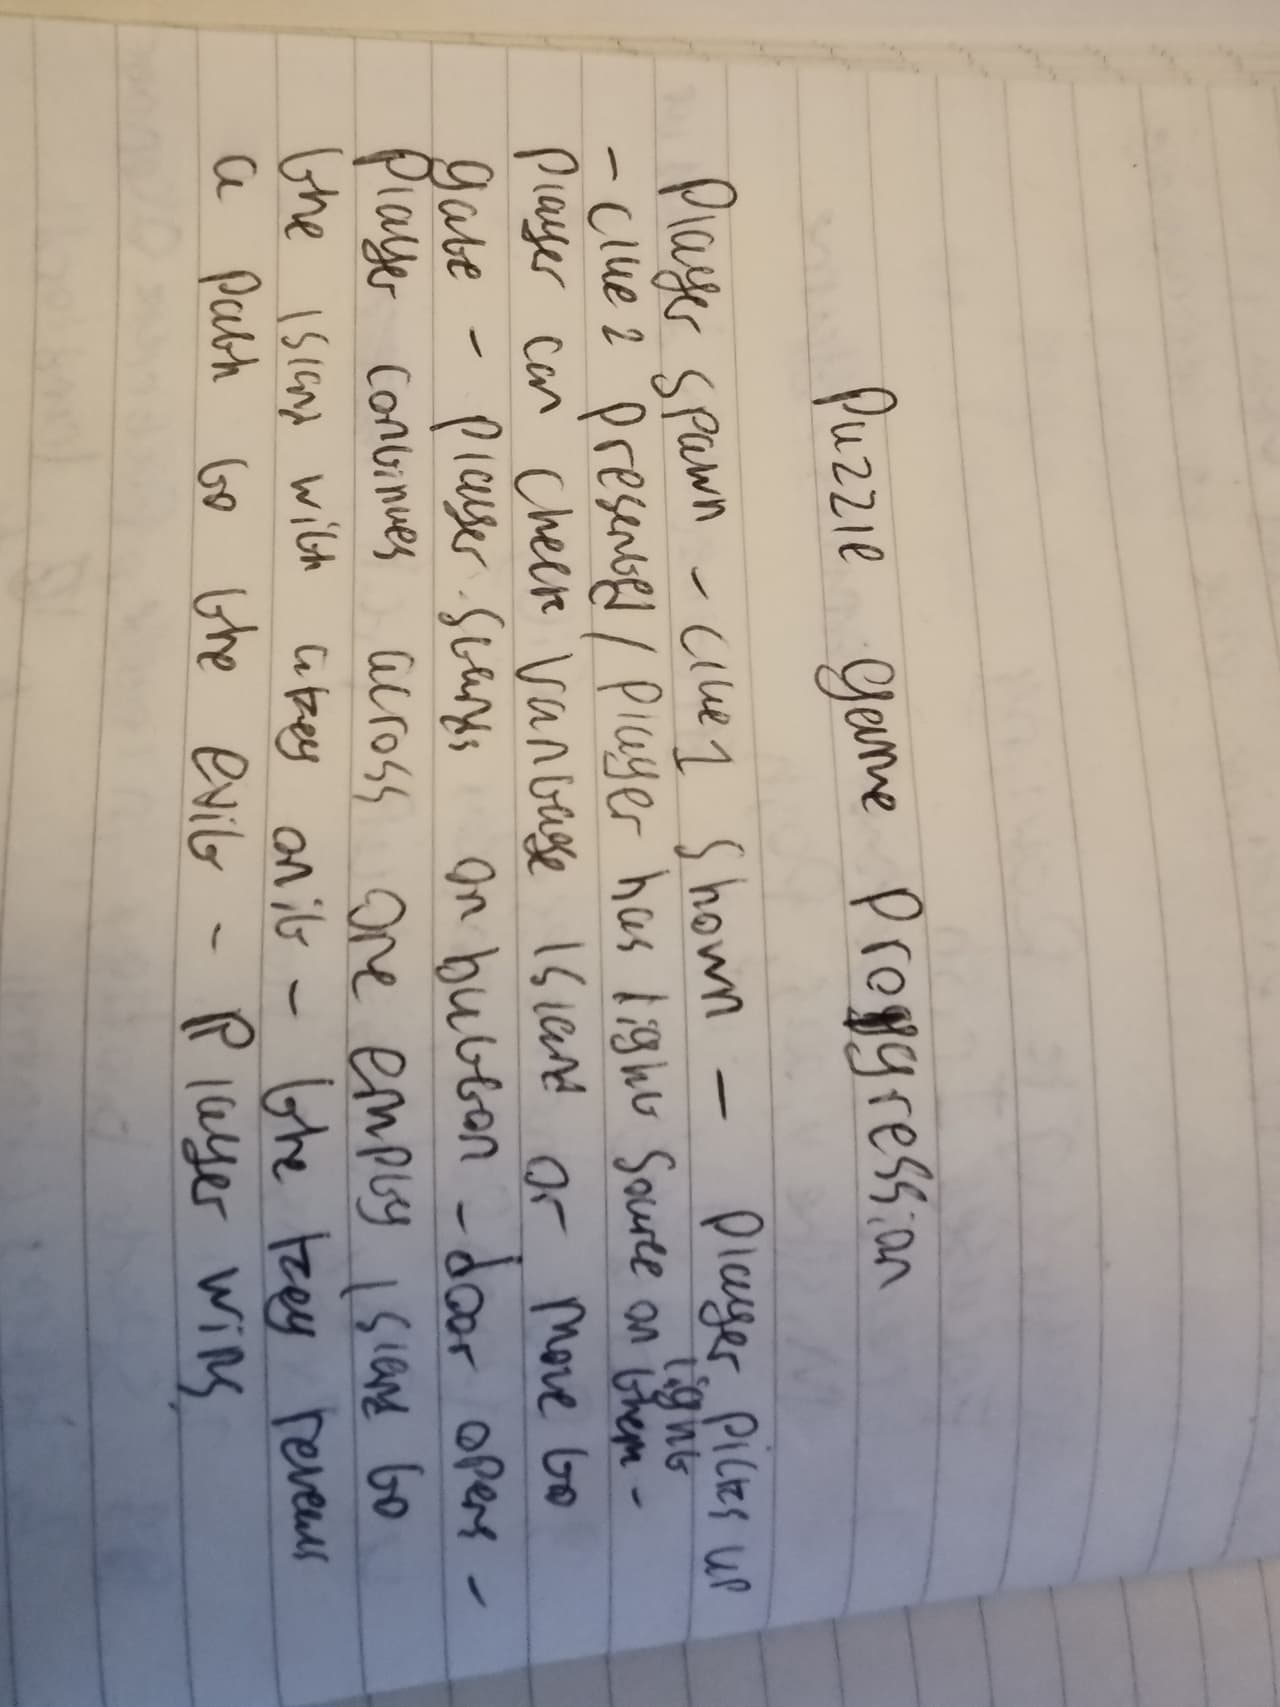 Puzzle game Proggression
Player spawn - Clue 1 shown - player picks up
light
- Clue 2 presented / player has light source on them -
player can check vantage island or move to
gate - player stands on button - door opens -
player continues across one empty island to
the island with a key on it - the key reveals
a path to the exit - Player wins